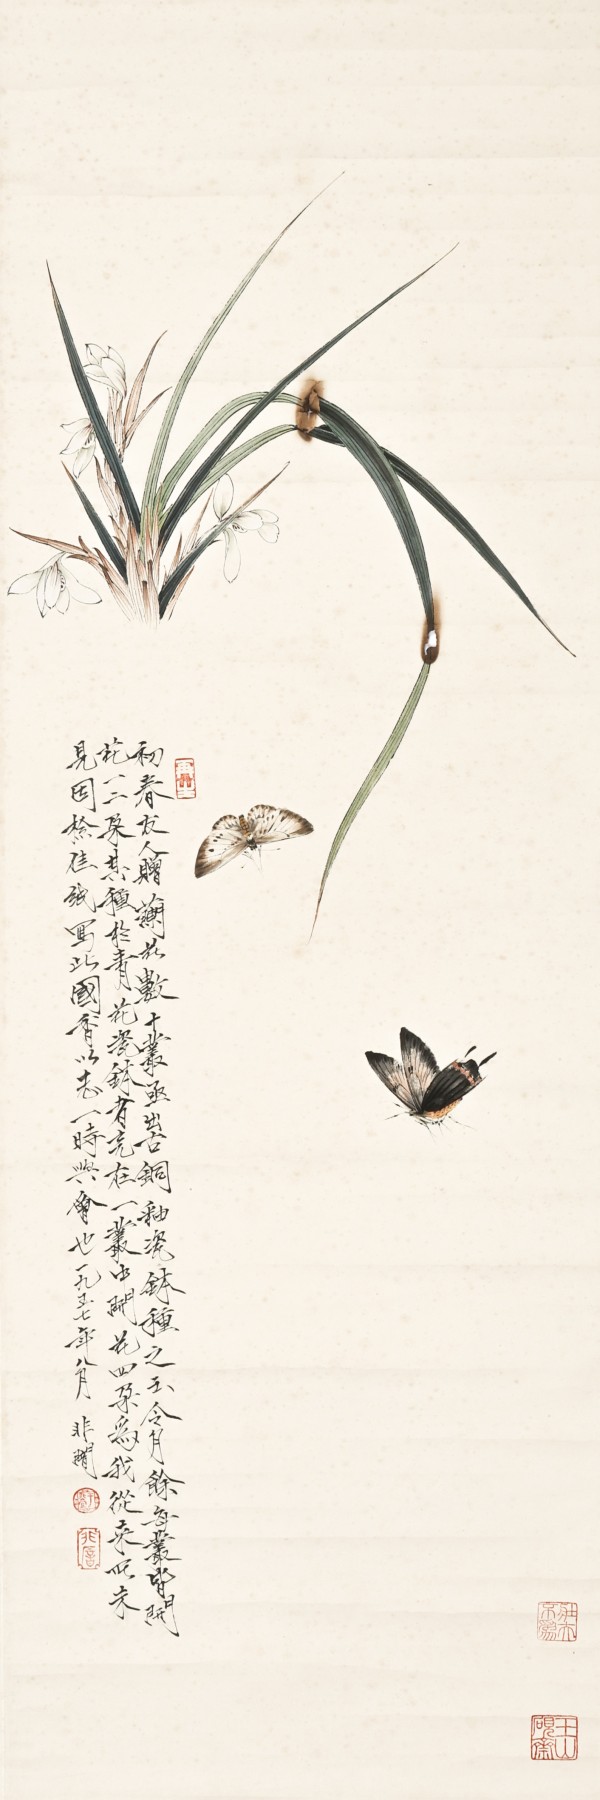 初春友人贈蘭花數十叢亟出古銅釉瓷鉢種之至今月餘每叢皆開
花一二朶其種於青花瓷鉢者竟在一叢中開花四朶為我從來所未
見因檢佳紙寫此國香以志一時興會也一九五七年八月 非闇
壯夫不為
玉山硯齋